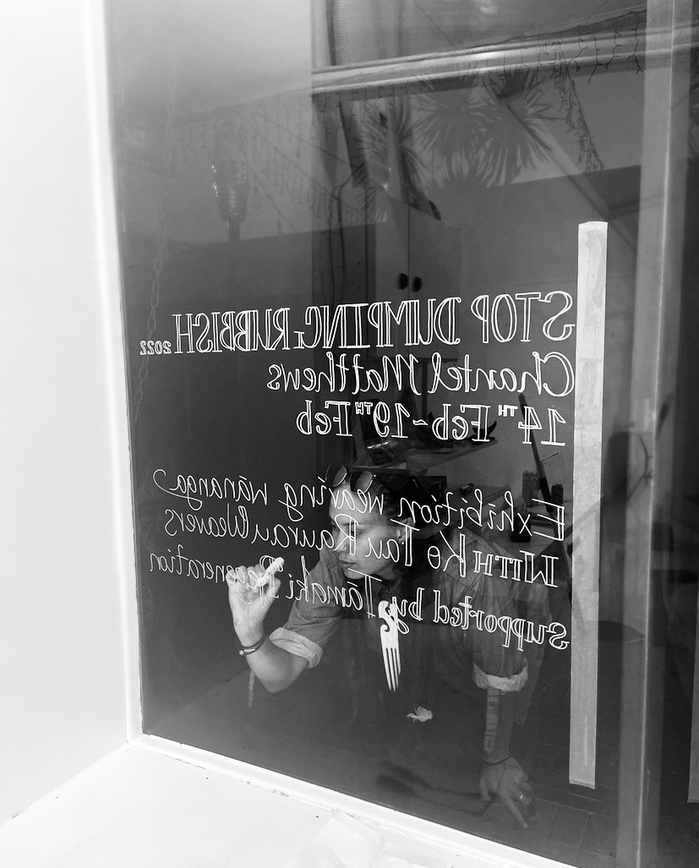 STOP DUMPING RUBBISH 2022
Chantel Matthews
14TH Feb~19TH Feb
Exhibition weaving wānanga
WITH Ko Tau Rourou Weavers
supported by Tāmaki Regeneration